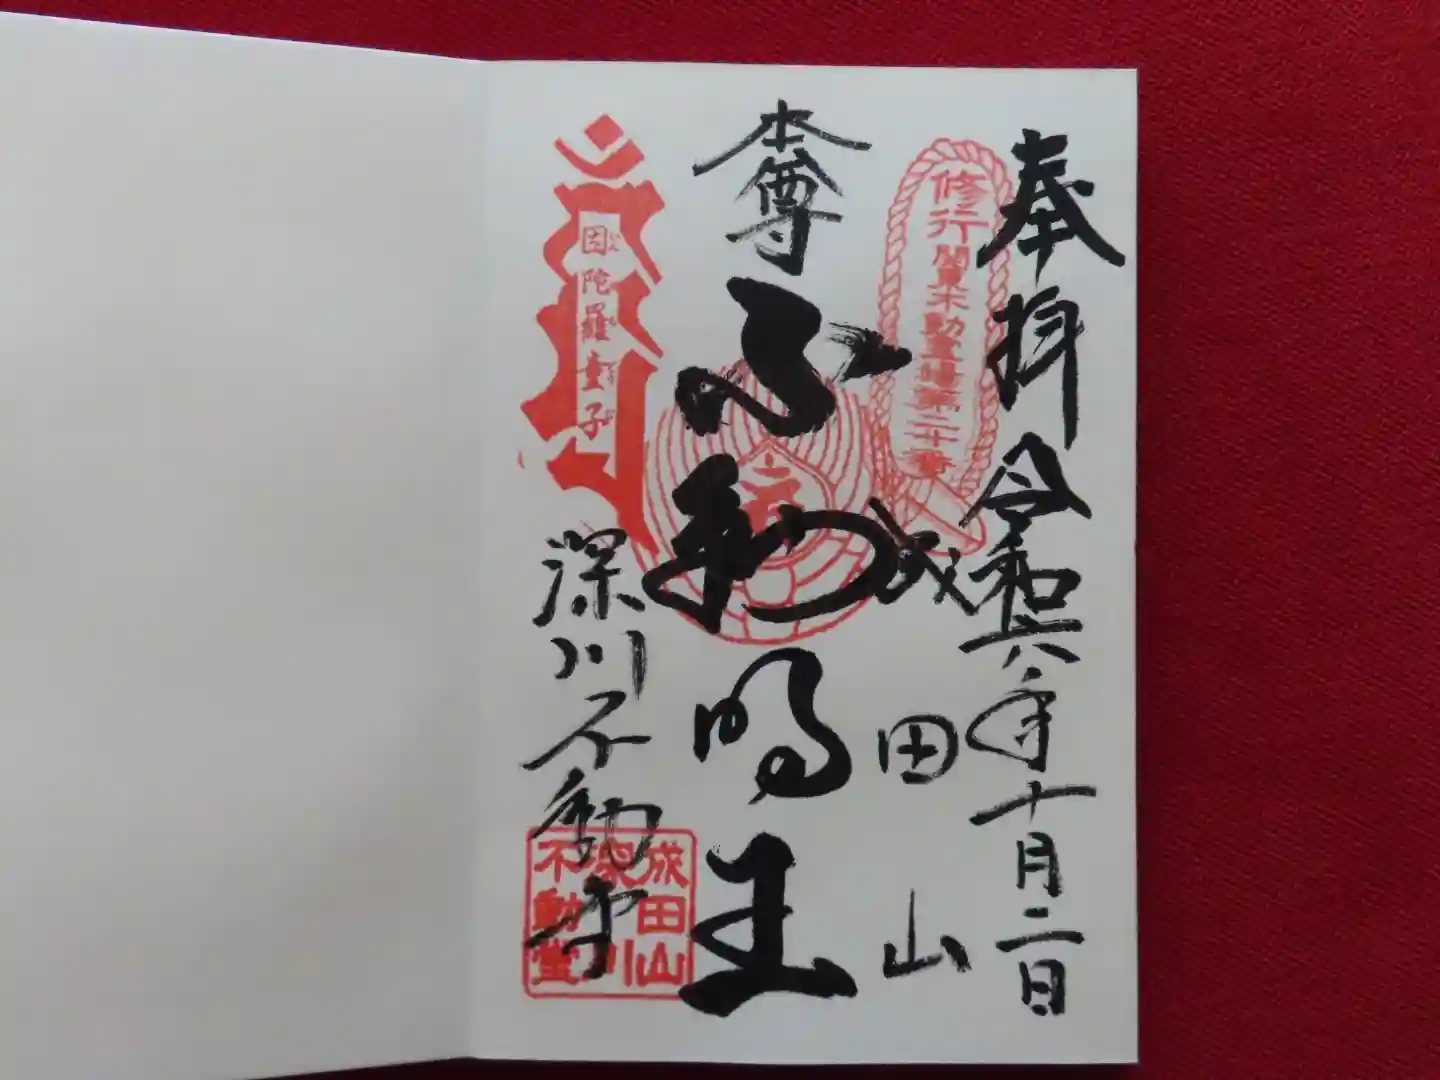 奉拝 令和六年十月二日
修行 関東不動霊場第二十番
成田山
本尊 不動明王
因陀羅童子
深川不動寺
成田山
深川
不動堂